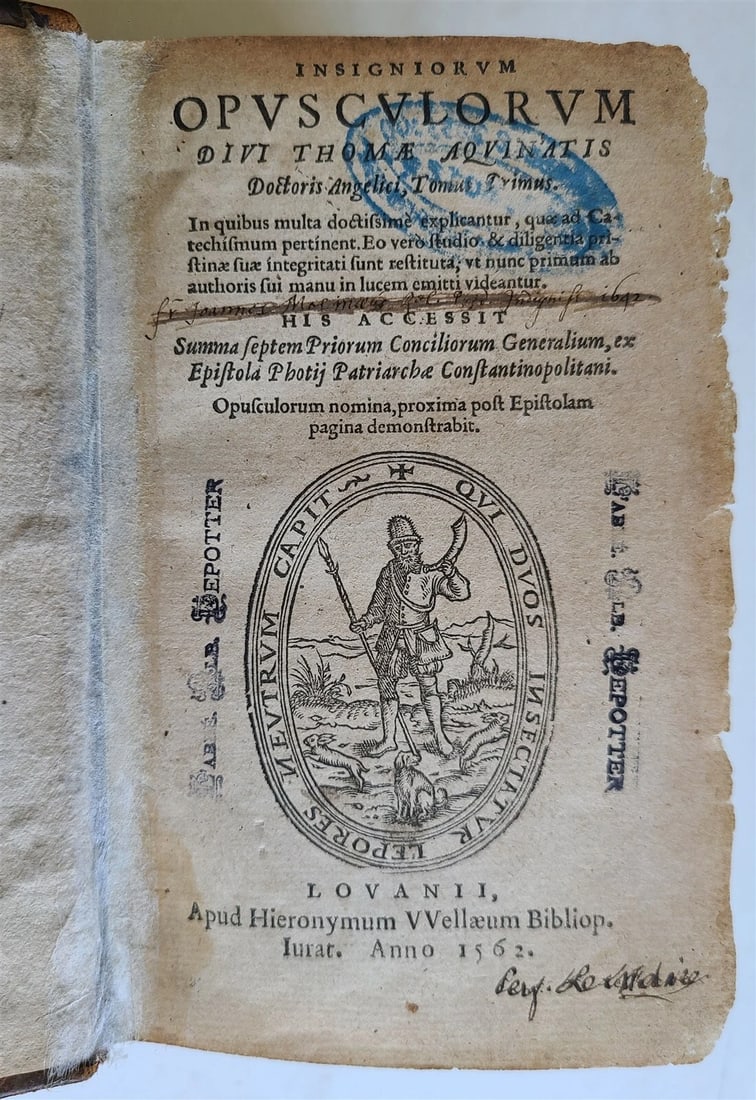 INSIGNIORVM
OPVSCVLORVM
DIVI THOMÆ AQVINATIS
Doctoris Angelici, Tomus Primus.
In quibus multa doctiſſimè explicantur, quæ ad Ca-
techiſmum pertinent. Eo verò ſtudio & diligentia pri-
ſtinæ ſuæ integritati ſunt reſtituta, vt nunc primum ab
authoris ſui manu in lucem emitti videantur.
fr Joannes 1642
HIS ACCESSIT
Summa ſeptem Priorum Conciliorum Generalium, ex
Epiſtola Photij Patriarchæ Conſtantinopolitani.
Opuſculorum nomina, proxima poſt Epiſtolam
pagina demonſtrabit.
QVI DVOS INSECTATVR LEPORES NEVTRVM CAPIT
DEPOTTER
DEPOTTER
LOVANII,
Apud Hieronymum VVellæum Bibliop.
Iurat. Anno 1562.